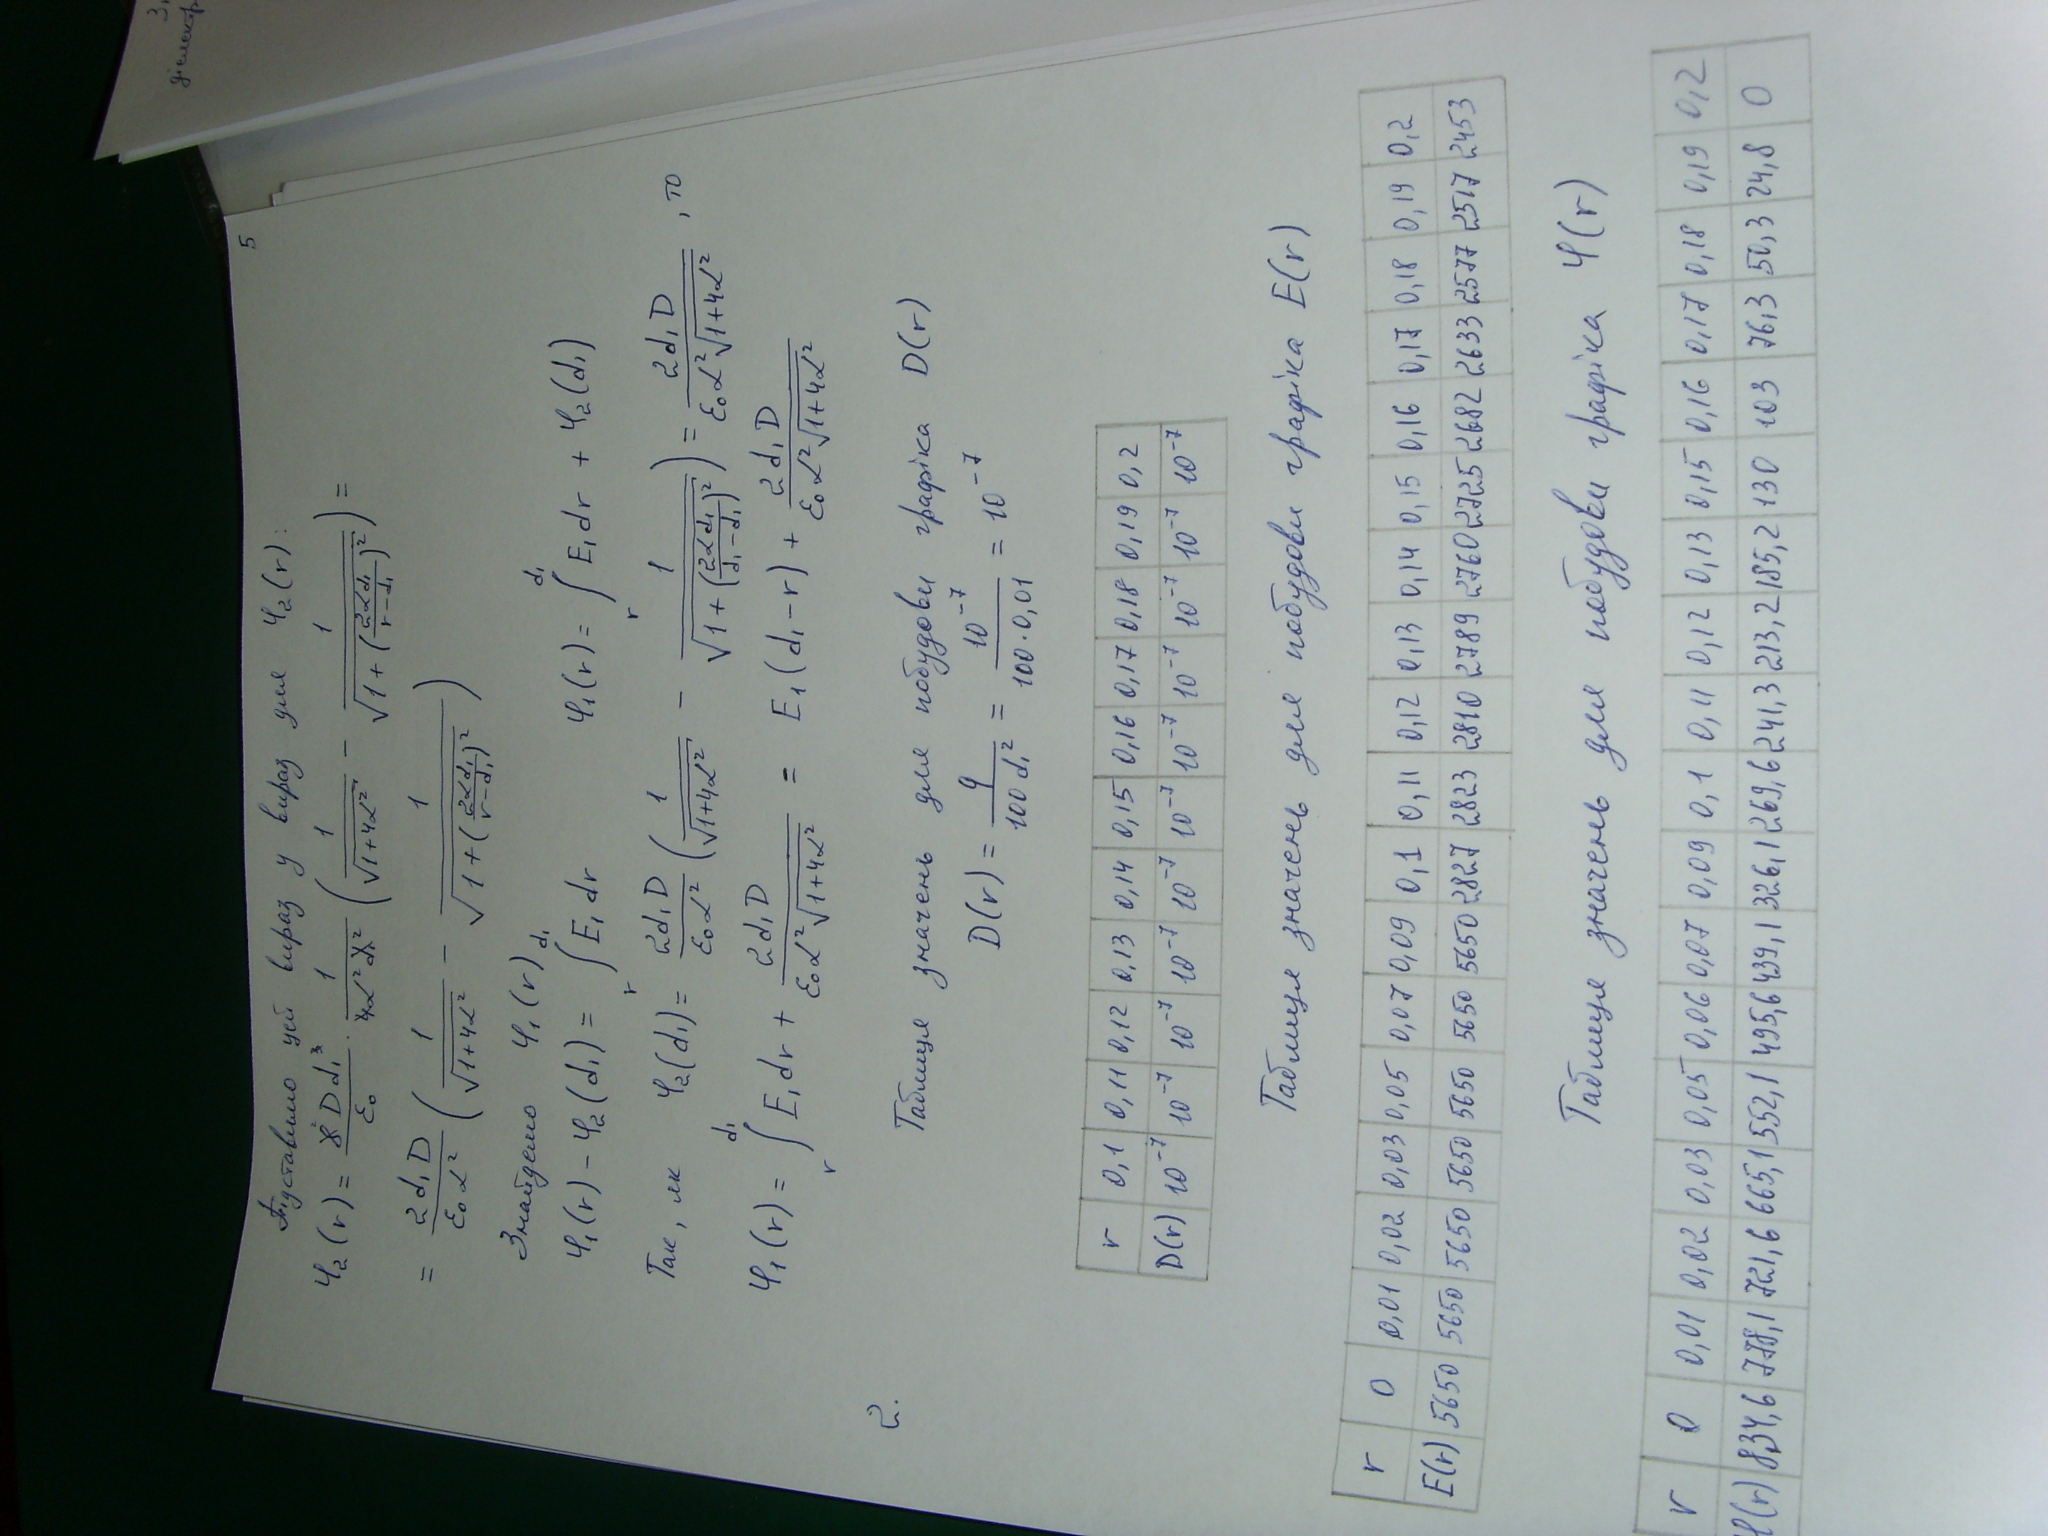 5
Підставимо цей вираз у вираз для φ₂(r):
φ₂(r) = 8Dd₁³/ε₀ · 1/(4α²d₁²) (1/√(1+4α²) − 1/√(1+(2αd₁/(r−d₁))²)) =
= 2d₁D/(ε₀α²) (1/√(1+4α²) − 1/√(1+(2αd₁/(r−d₁))²))
Знайдемо φ₁(r)
φ₁(r) − φ₂(d₁) = ∫ᵣ^d₁ E₁dr φ₁(r) = ∫ᵣ^d₁ E₁dr + φ₂(d₁)
Так, як φ₂(d₁) = 2d₁D/(ε₀α²) (1/√(1+4α²) − 1/√(1+(2αd₁/(d₁−d₁))²)) = 2d₁D/(ε₀α²√(1+4α²)), то
φ₁(r) = ∫ᵣ^d₁ E₁dr + 2d₁D/(ε₀α²√(1+4α²)) = E₁(d₁−r) + 2d₁D/(ε₀α²√(1+4α²))
2. Таблиця значень для побудови графіка D(r)
D(r) = q/(100d₁²) = 10⁻⁷/(100·0,01) = 10⁻⁷
r 0,1 0,11 0,12 0,13 0,14 0,15 0,16 0,17 0,18 0,19 0,2
D(r) 10⁻⁷ 10⁻⁷ 10⁻⁷ 10⁻⁷ 10⁻⁷ 10⁻⁷ 10⁻⁷ 10⁻⁷ 10⁻⁷ 10⁻⁷ 10⁻⁷
Таблиця значень для побудови графіка E(r)
r 0 0,01 0,02 0,03 0,05 0,07 0,09 0,1 0,11 0,12 0,13 0,14 0,15 0,16 0,17 0,18 0,19 0,2
E(r) 5650 5650 5650 5650 5650 5650 5650 2827 2823 2810 2789 2760 2725 2682 2633 2577 2517 2453
Таблиця значень для побудови графіка φ(r)
r 0 0,01 0,02 0,03 0,05 0,06 0,07 0,09 0,1 0,11 0,12 0,13 0,15 0,16 0,17 0,18 0,19 0,2
φ(r) 834,6 778,1 721,6 665,1 552,1 495,6 439,1 326,1 269,6 241,3 213,2 185,2 130 103 76,3 50,3 24,8 0